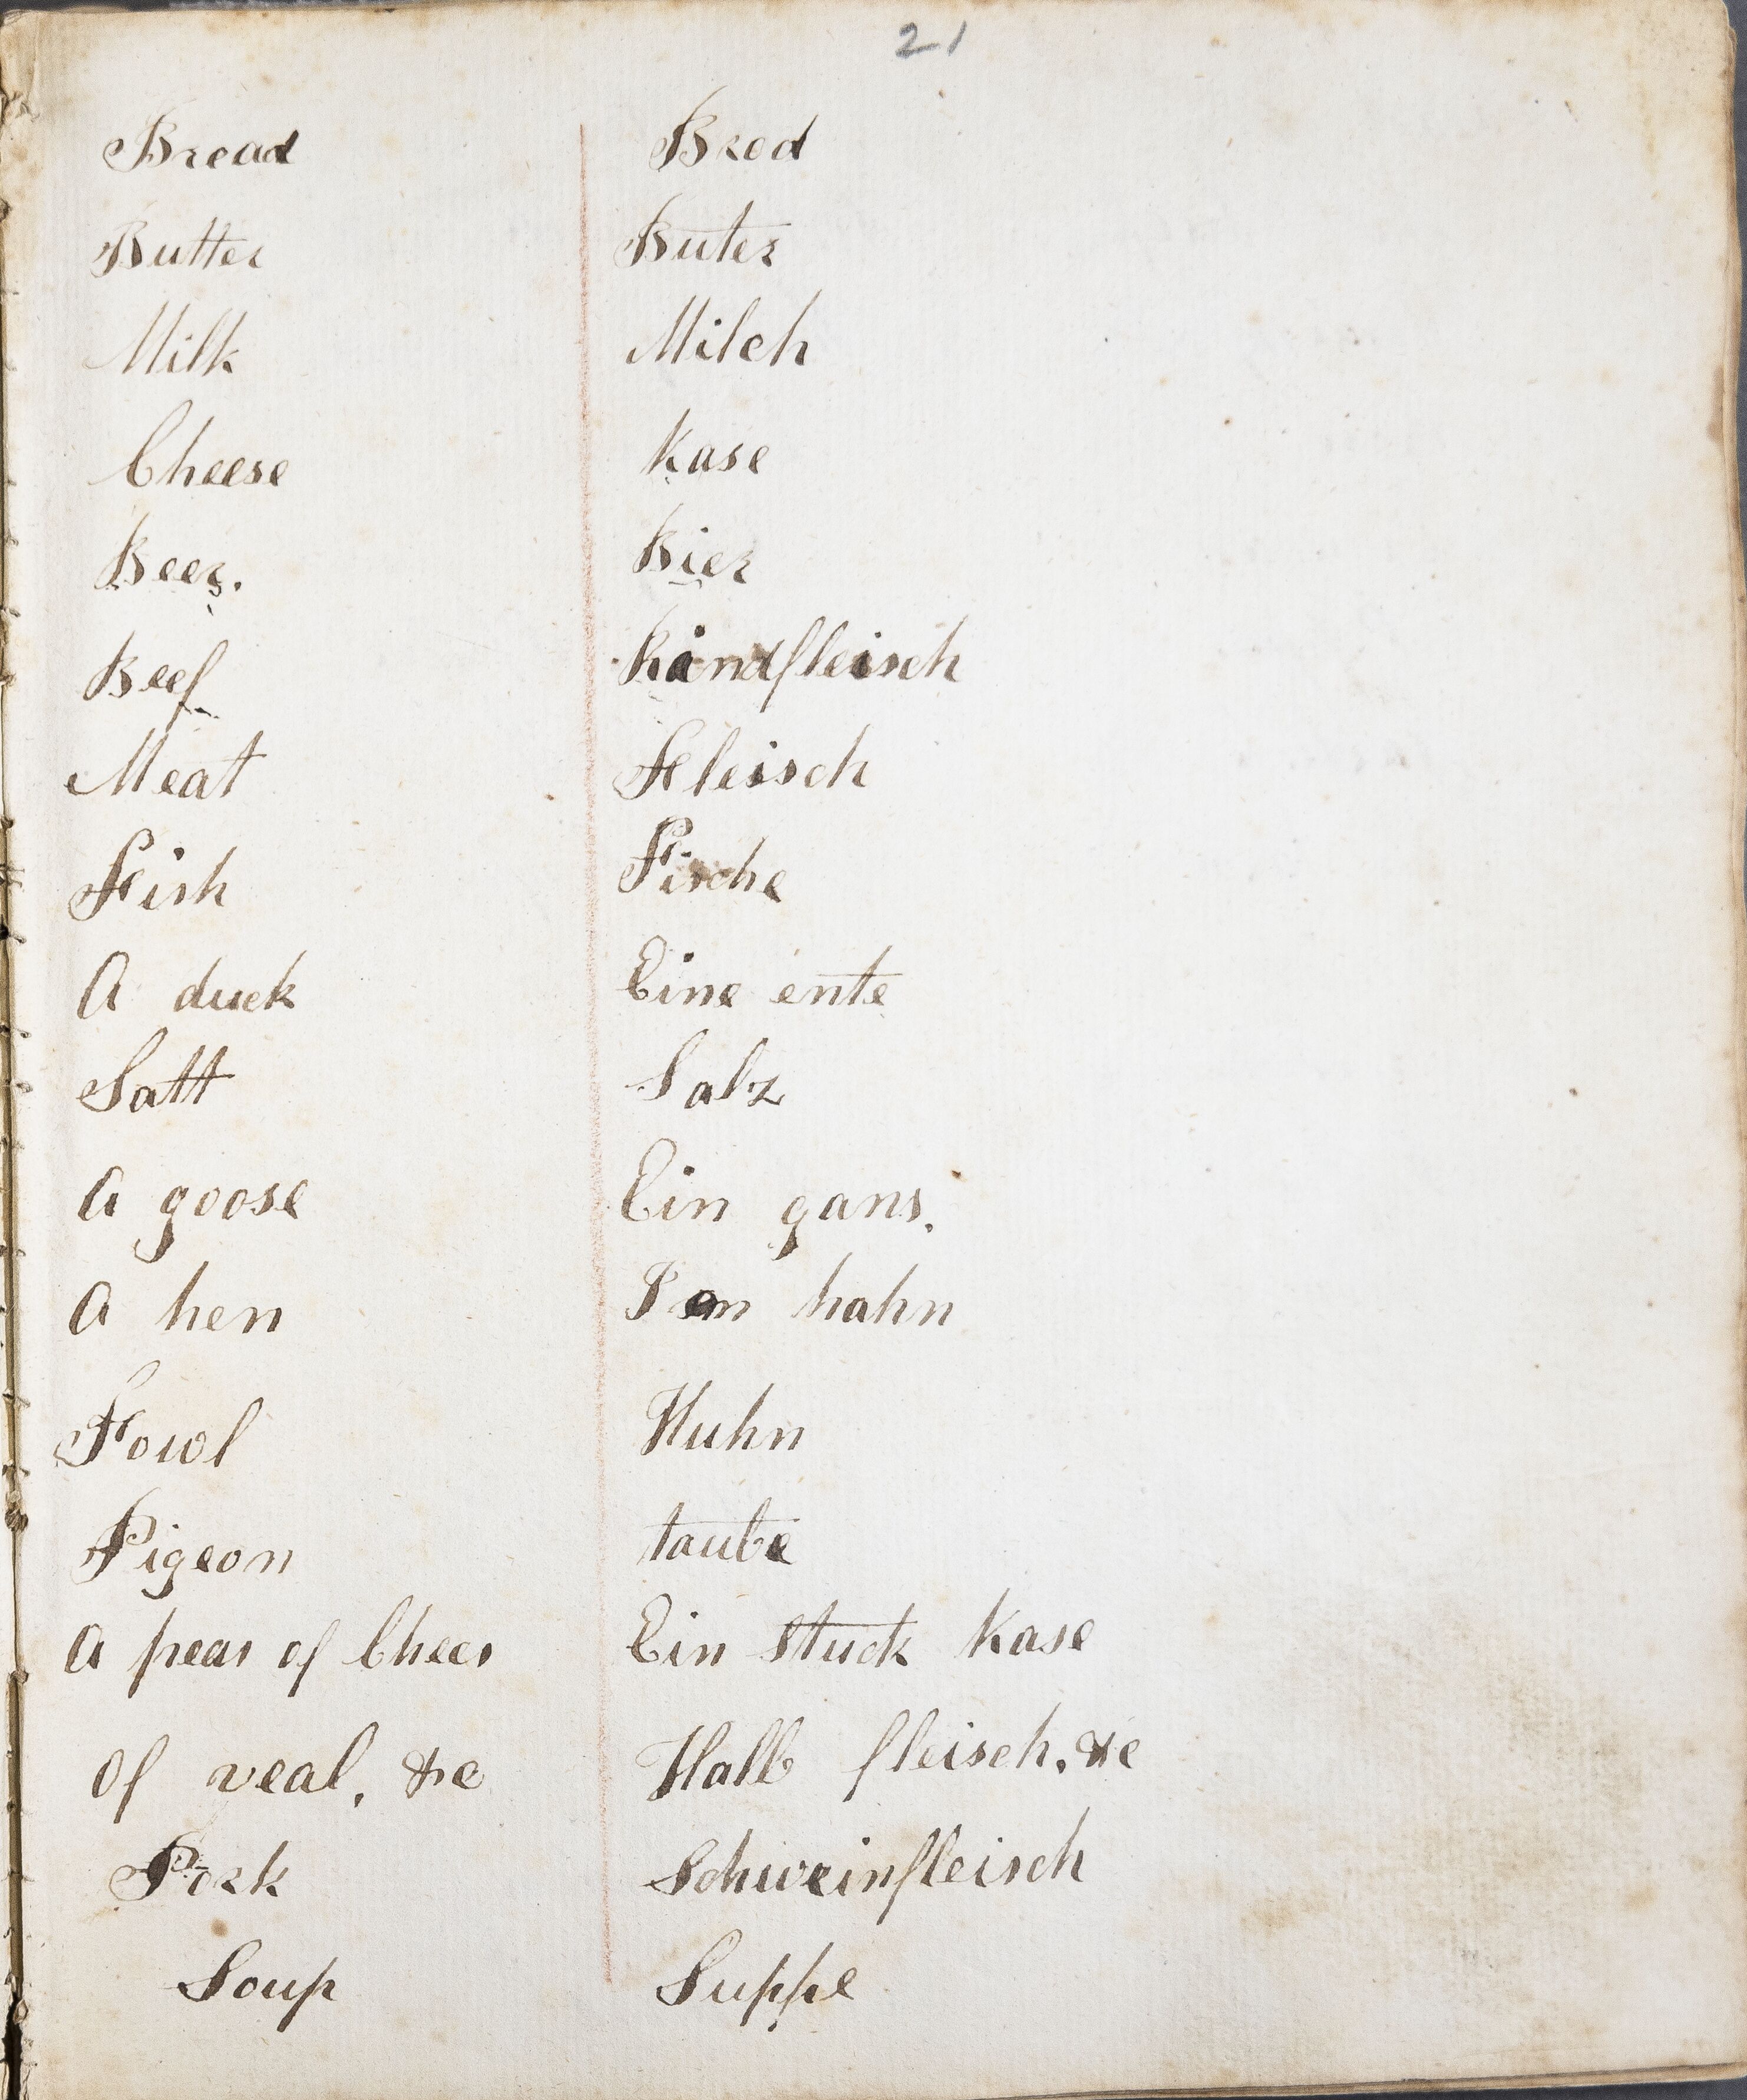 21
Bread Brod
Butter Buter
Milk Milch
Cheese Kase
Beer. Bier
Beef Rindfleisch
Meat Fleisch
Fish Fische
A duck Eine ente
Satt Salz
A goose Ein gans.
A hen hahn
Fowl Huhn
Pigeon taube
A peas of Chees Ein Stuck Kase
Of veal, &c Halb fleisch, &c
Pork Schweinfleisch
Soup Suppe